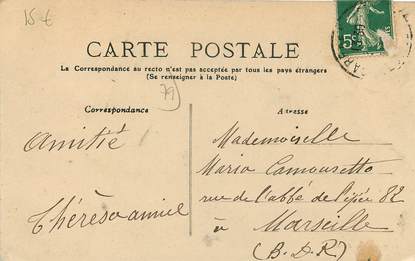 15 €
CARTE POSTALE
La Correspondance au recto n'est pas acceptée par tous les pays étrangers
(Se renseigner à la Poste)
79
Correspondance
Adresse
Amitié
Mademoiselle
Maria Camousetto
rue de l'abbé de l'épée 82
à
Thérèse
Marseille
(B.D.R)
5c